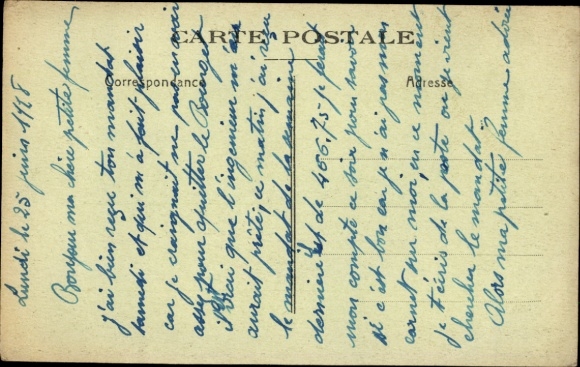 CARTE POSTALE
Correspondance
Adresse
Lundi le 25 juin 1928
Bonjour ma chère petite femme
j'ai bien reçu ton mandat
samedi et qui m'a fait plaisir
car je craignait ne pas avoir
assez pour quitter le Bourget
que l'ingénieur m'en
aurait prêté, ce matin j'ai reçu
le mandat de la semaine
dernière et de 466,75 je ferai
mon compte ce soir pour savoir
si c'est bon car je n'ai pas mon
carnet sur moi, en ce moment
je t'écris de la poste où je vient
chercher le mandat
Alors ma petite femme adorée